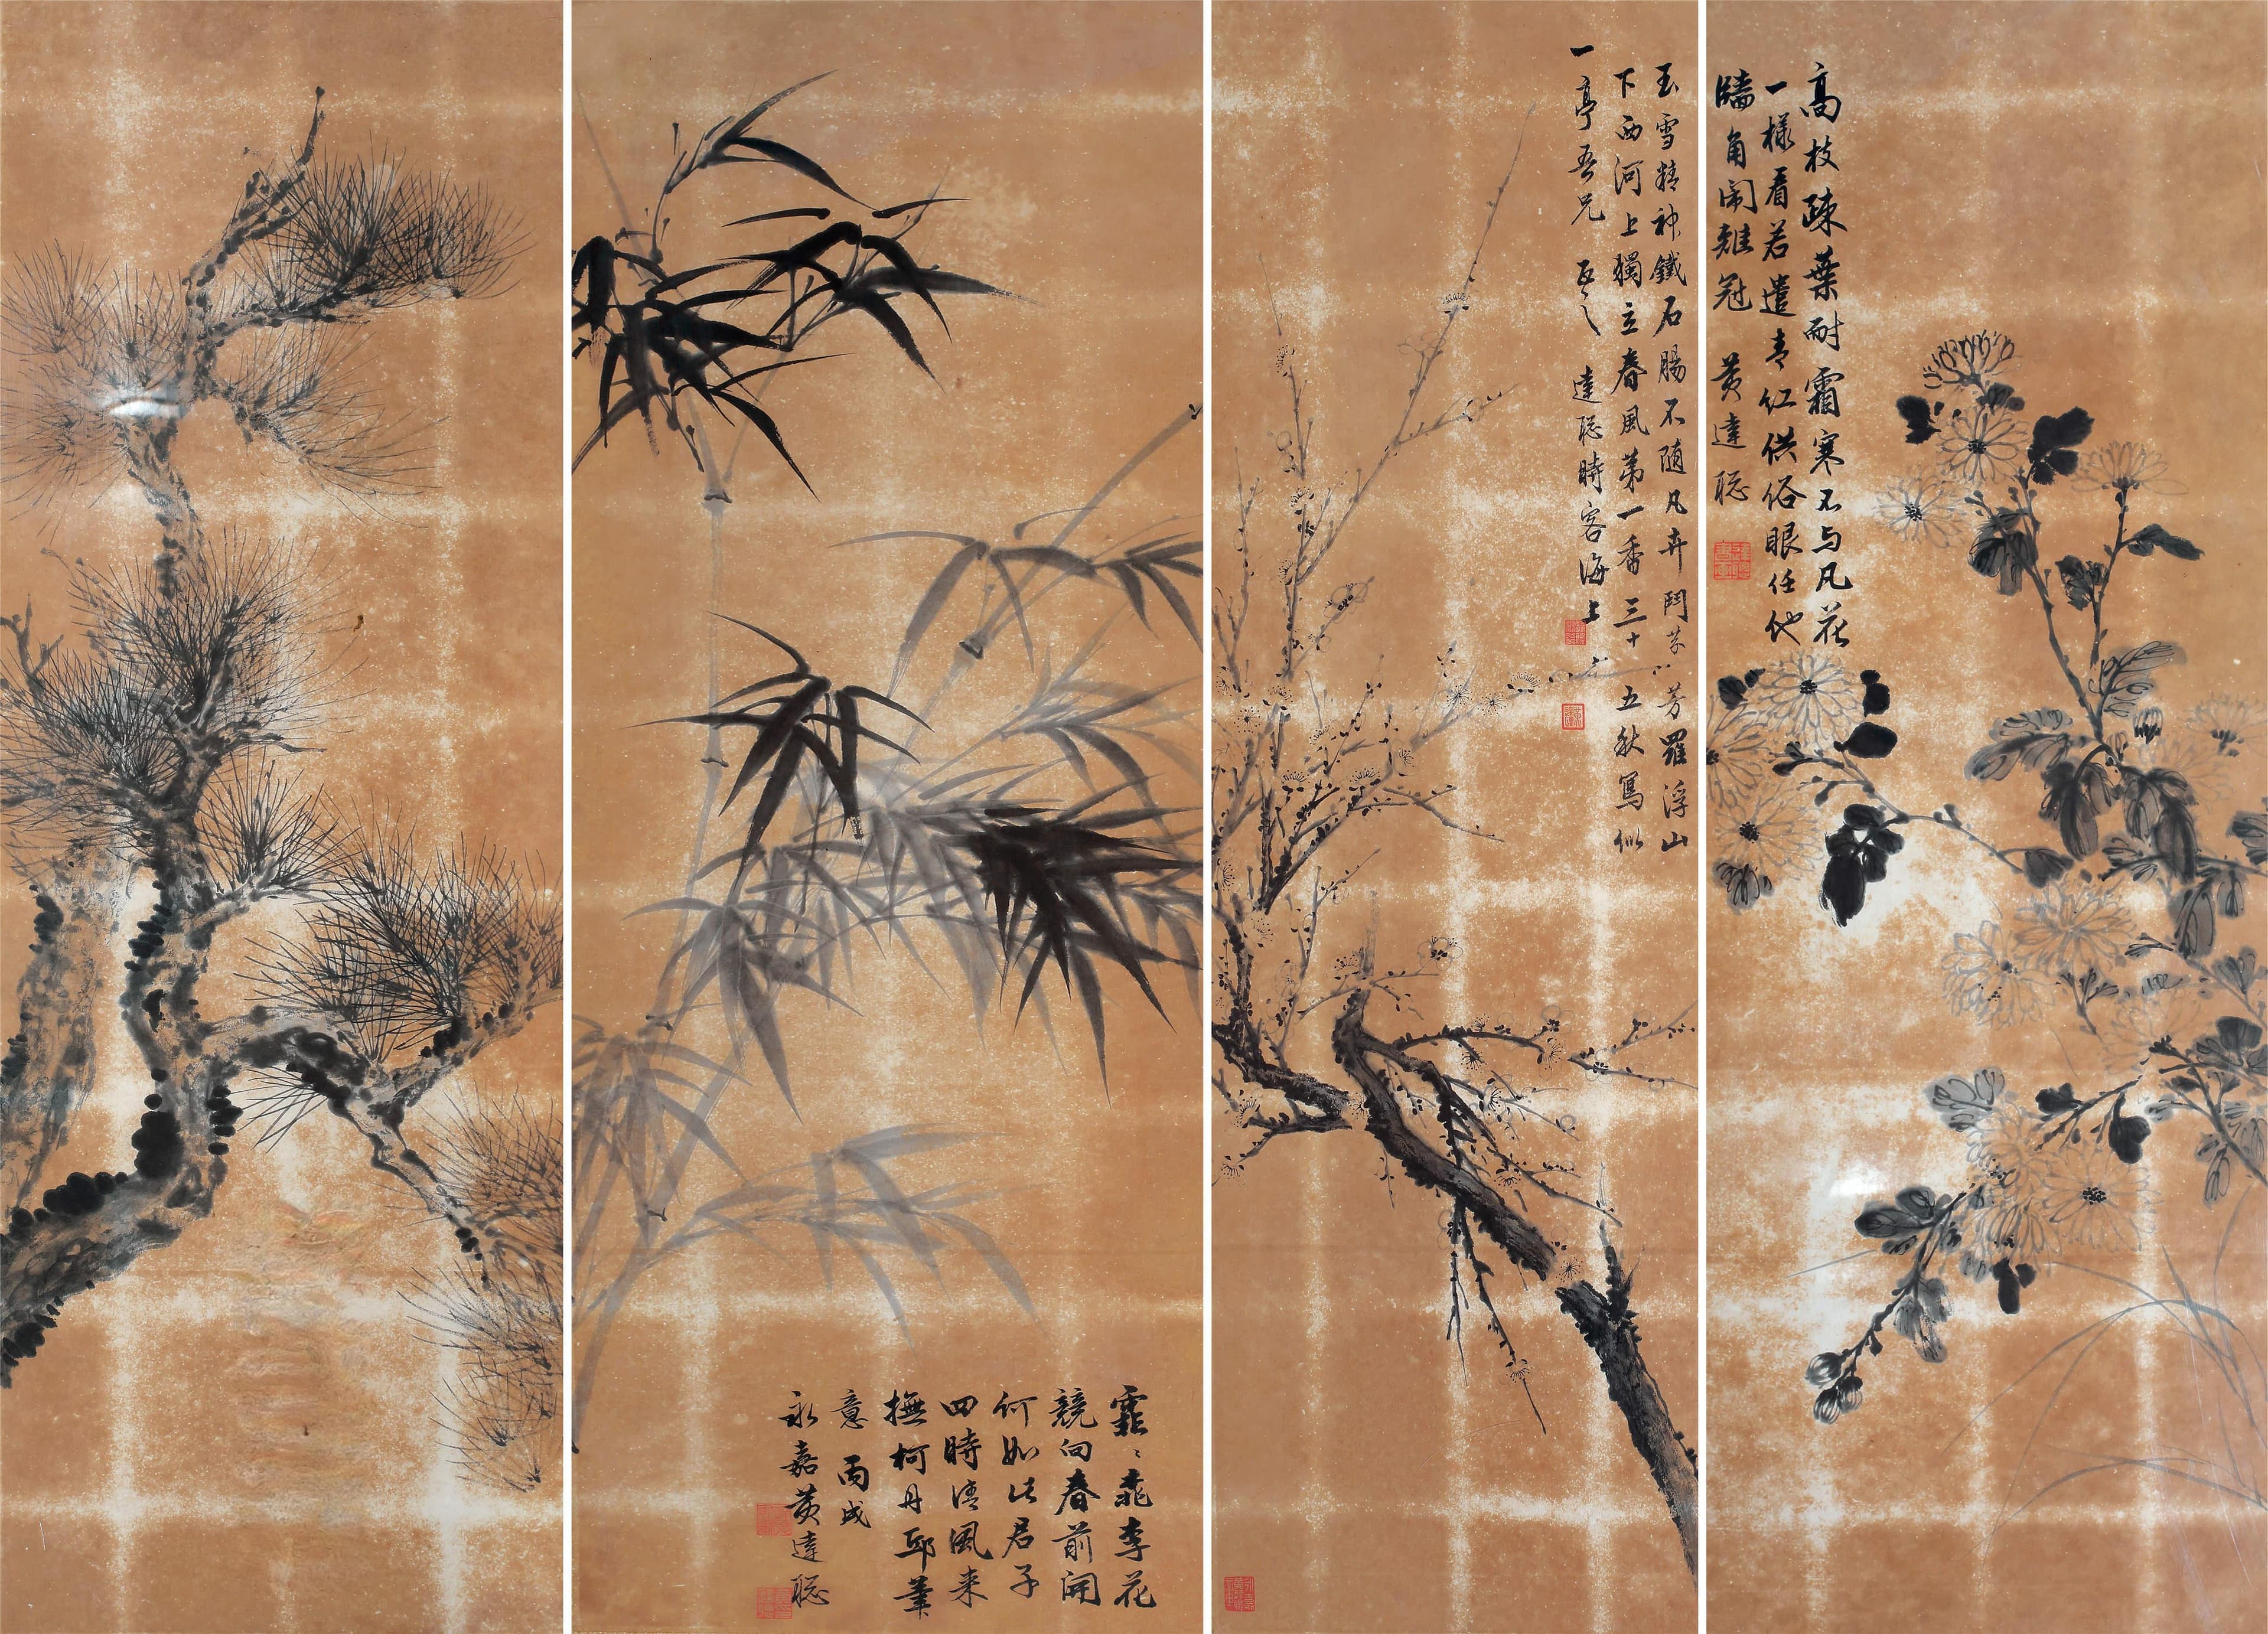 高枝疎葉耐霜寒不与凡花
一樣看若遣青红供俗眼任他
牆角闹雞冠 黄達聪
玉雪精神鐵石腸不随凡卉鬥芬芳羅浮山
下西河上獨立春風第一香 三十五秋寫似
一亭吾兄 正之 達聪時客海上
霏〻桃李花
競向春前開
何如此君子
四時清風来
撫柯丹邱筆
意 丙戌
永嘉黄達聪